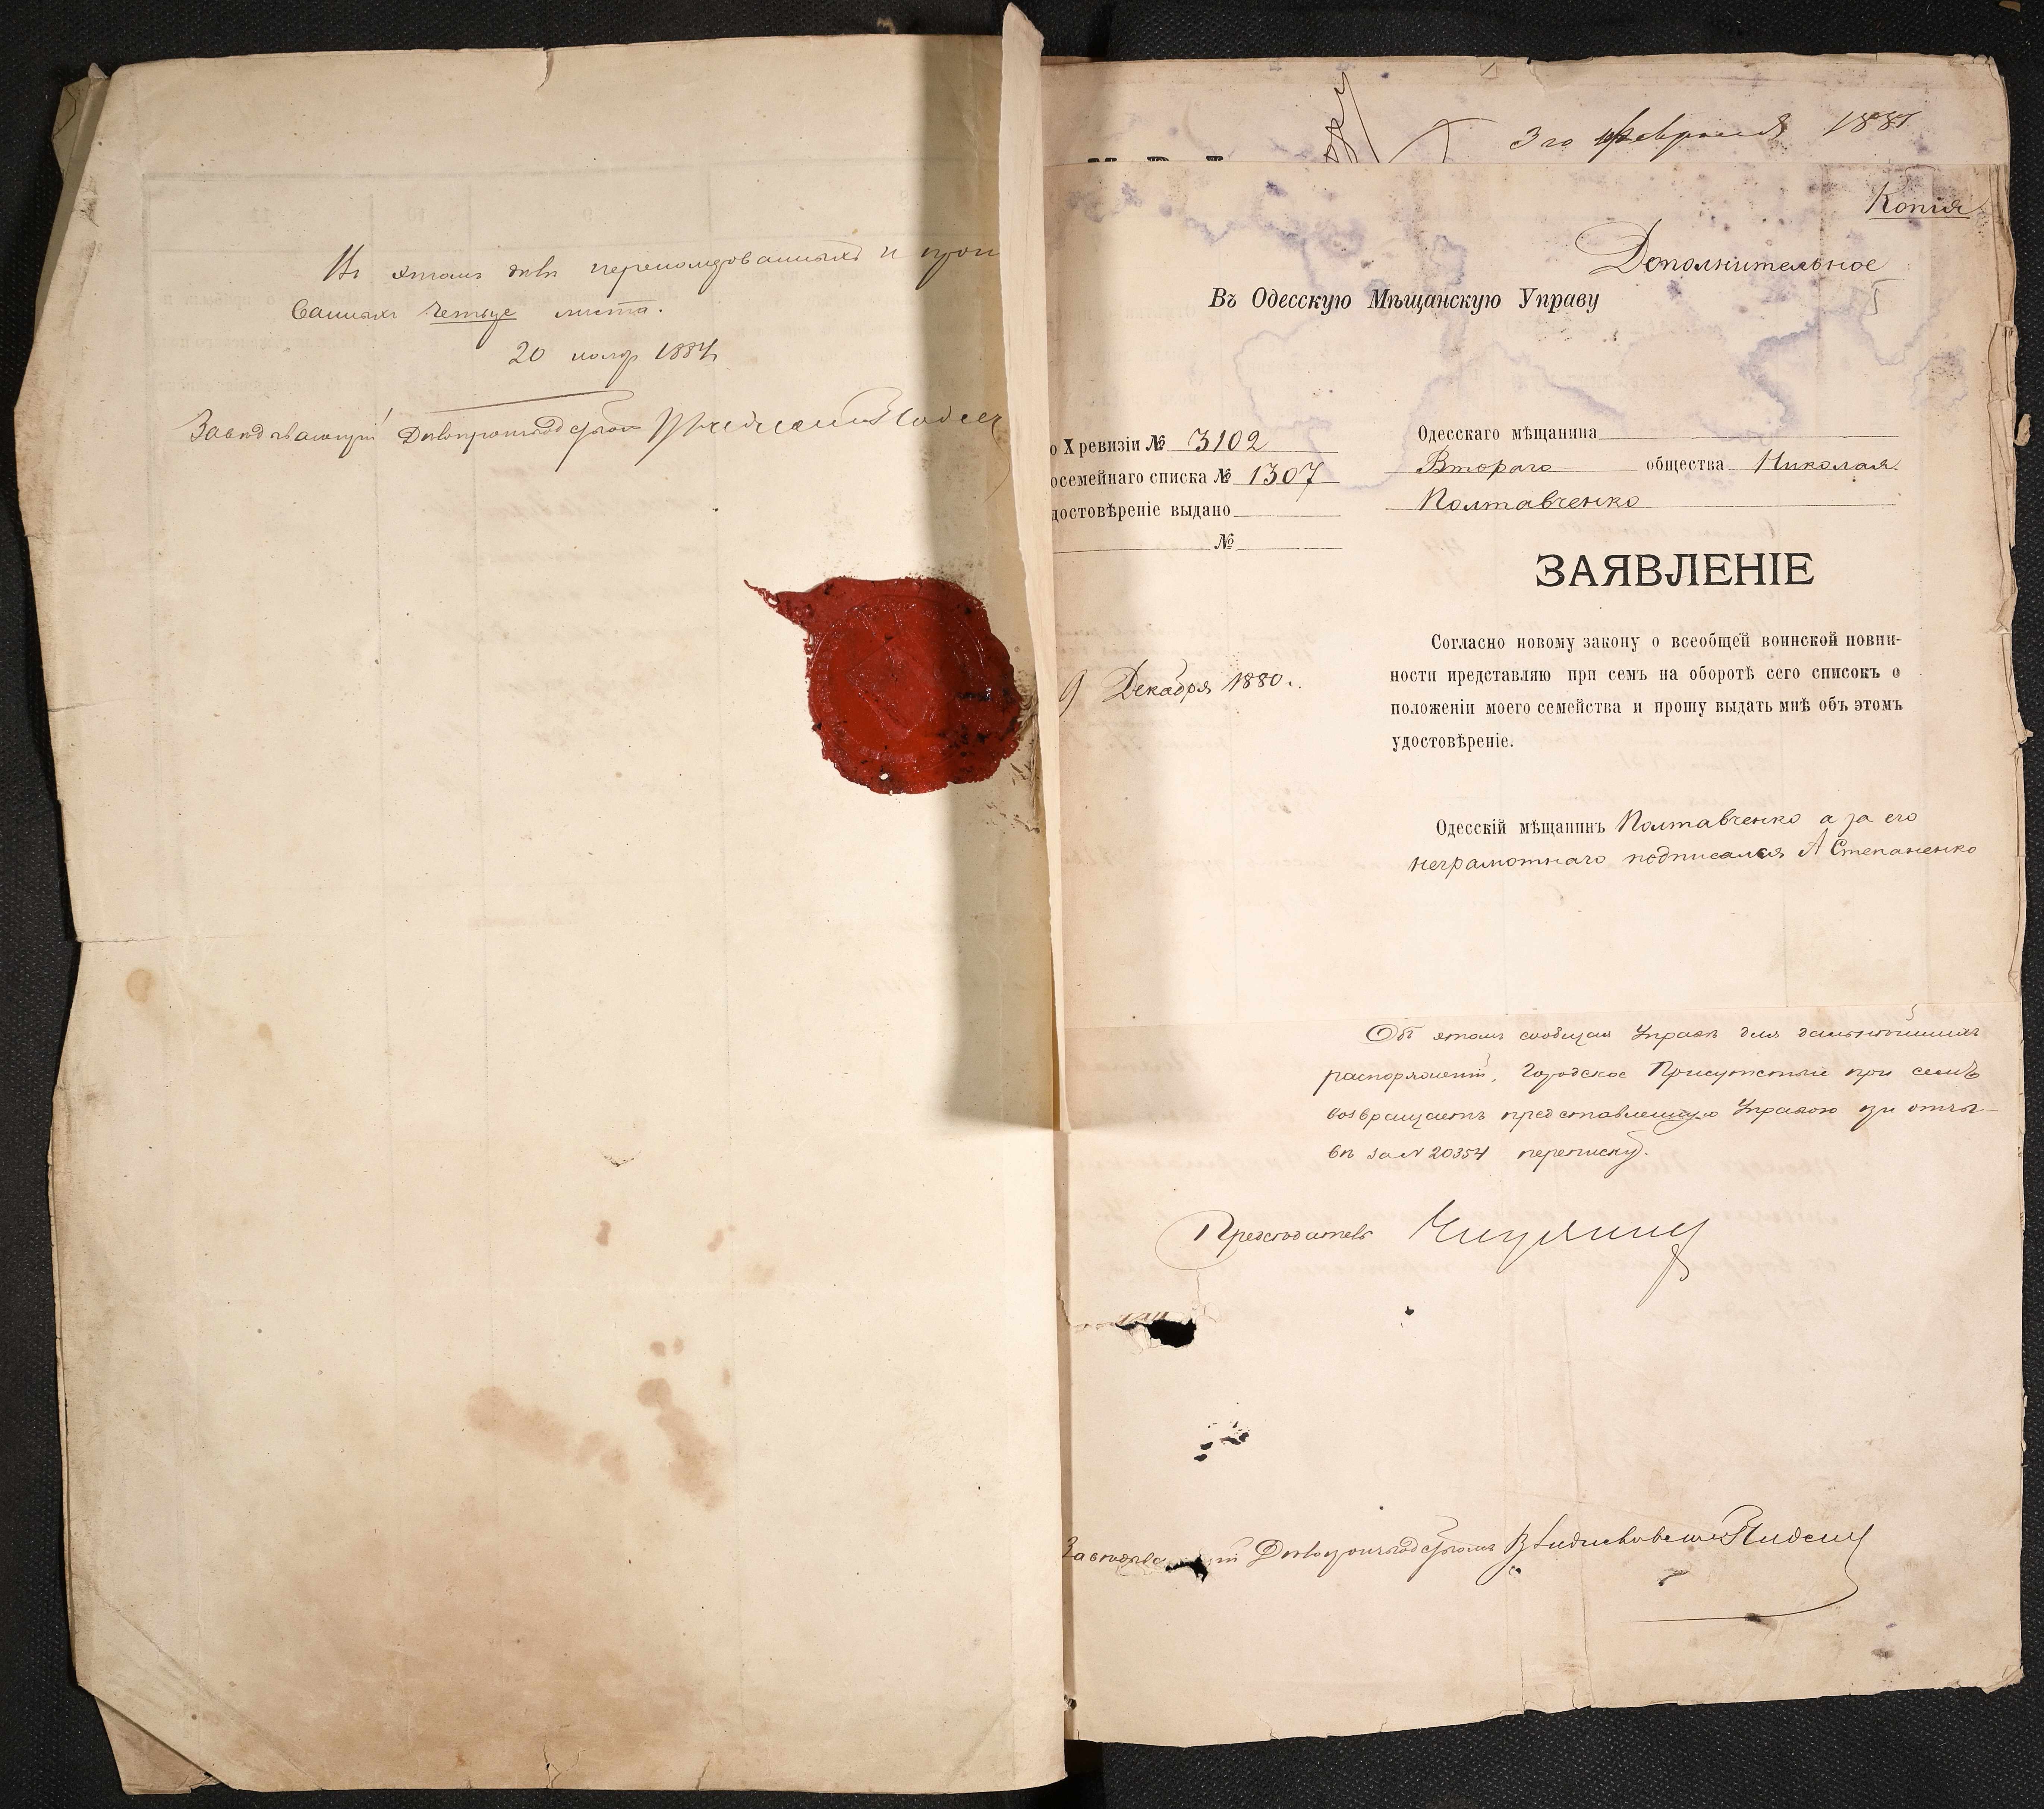 Въ этомъ дѣлѣ перенумерованныхъ и прону
ванныхъ четыре листа.
20 нояб 1884
Завѣдывающій Дѣлопроизводствомъ
3го февраля 1881
Копія
Дополнительное
Въ Одесскую Мѣщанскую Управу
о X ревизіи № 3102
осемейнаго списка № 1307
достовѣреніе выдано
№
Одесскаго мѣщанина
Втораго общества Николая
Полтавченко
ЗАЯВЛЕНІЕ
Согласно новому закону о всеобщей воинской повин-
ности представляю при семъ на оборотѣ сего списокъ о
положеніи моего семейства и прошу выдать мнѣ объ этомъ
удостовѣреніе.
9 Декабря 1880 г.
Одесскій мѣщанинъ Полтавченко а за его
неграмотнаго подписался А Степаненко
Объ этомъ сообщая Управѣ для дальнѣйшихъ
распоряженій, Городское Присутствіе при семъ
возвращаетъ представленную Управою при отзы-
вѣ за № 20354 переписку.
Председатель
Дѣлопроизводствомъ